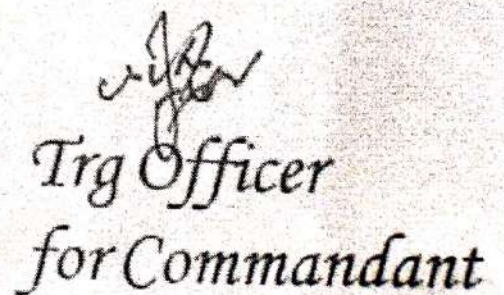 Trg Officer
for Commandant